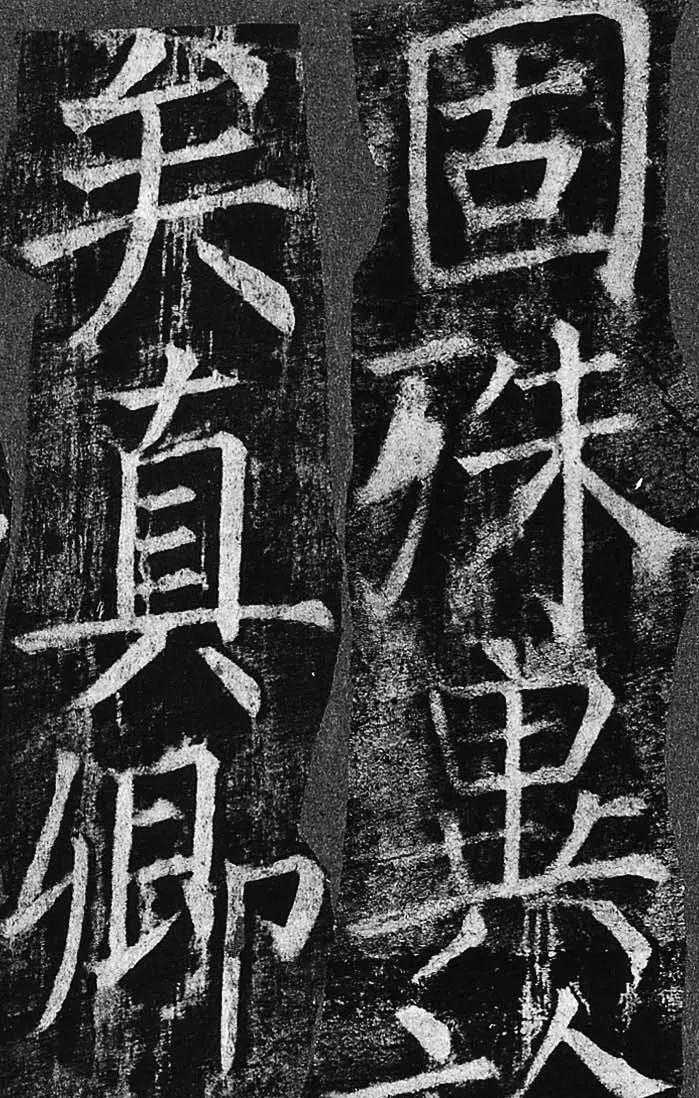 固殊異
矣真卿